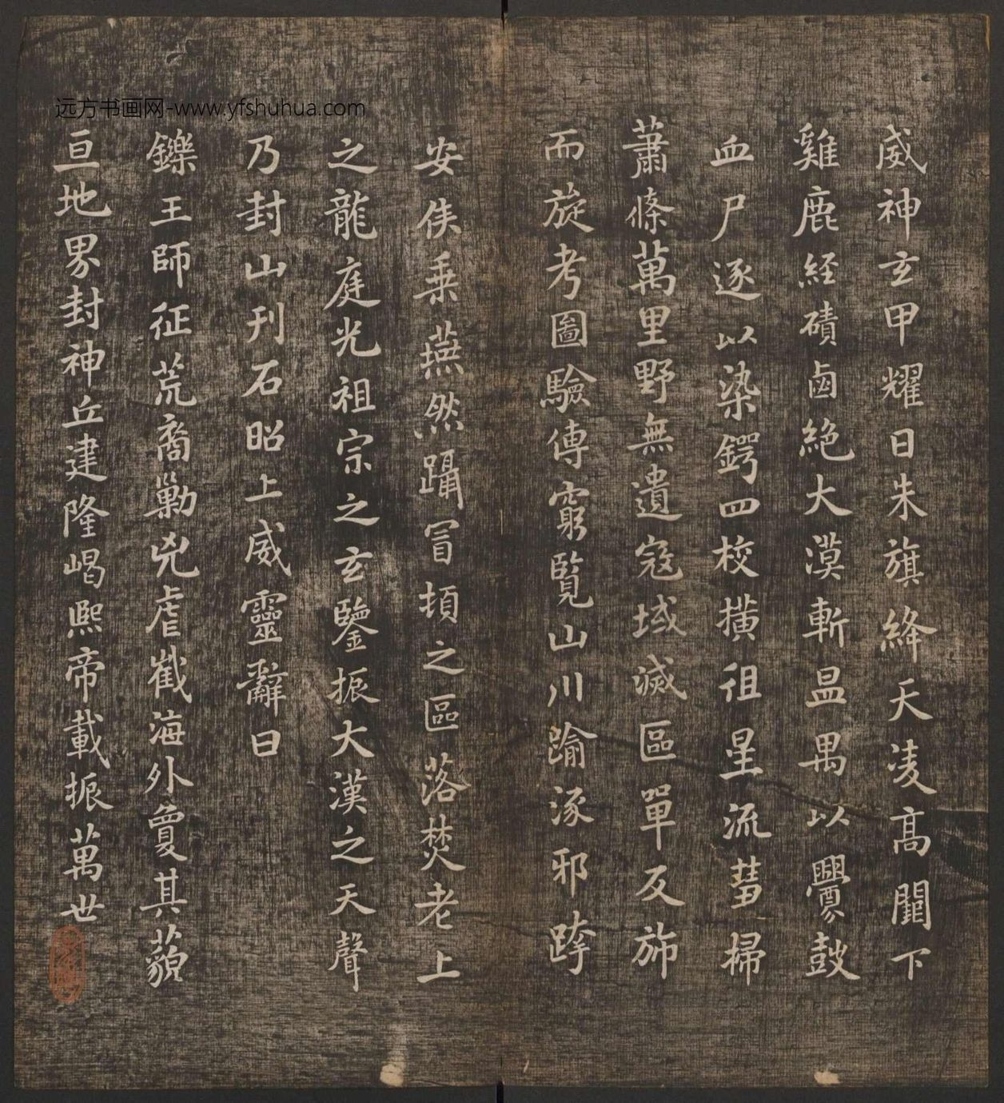 远方书画网-www.yfshuhua.com
威神玄甲耀日朱旗絳天凌高闕下
雞鹿経磧鹵絶大漠斬昷禺以釁鼓
血尸逐以染鍔四校橫徂星流彗掃
蕭條萬里野無遺寇域滅區單反斾
而旋考圖驗傳窮覽山川踰涿邪跨
安侯乗燕然躡冒頓之區落焚老上
之龍庭光祖宗之玄鑒振大漢之天聲
乃封山刊石昭上威靈辭曰
鑠王師征荒裔勦兇虐截海外敻其藐
亘地界封神丘建隆嵑熈帝載振萬世